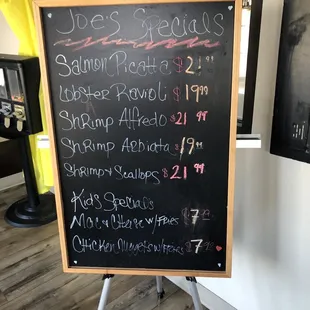 Joe's Specials
Salmon Picatta $21.99
Lobster Ravioli $19.99
Shrimp Alfredo $21.99
Shrimp Arbiata $19.99
Shrimp & Scallops $21.99
Kids Specials
Mac & Cheese w/Fries $7
Chicken Nuggets w/Fries $7